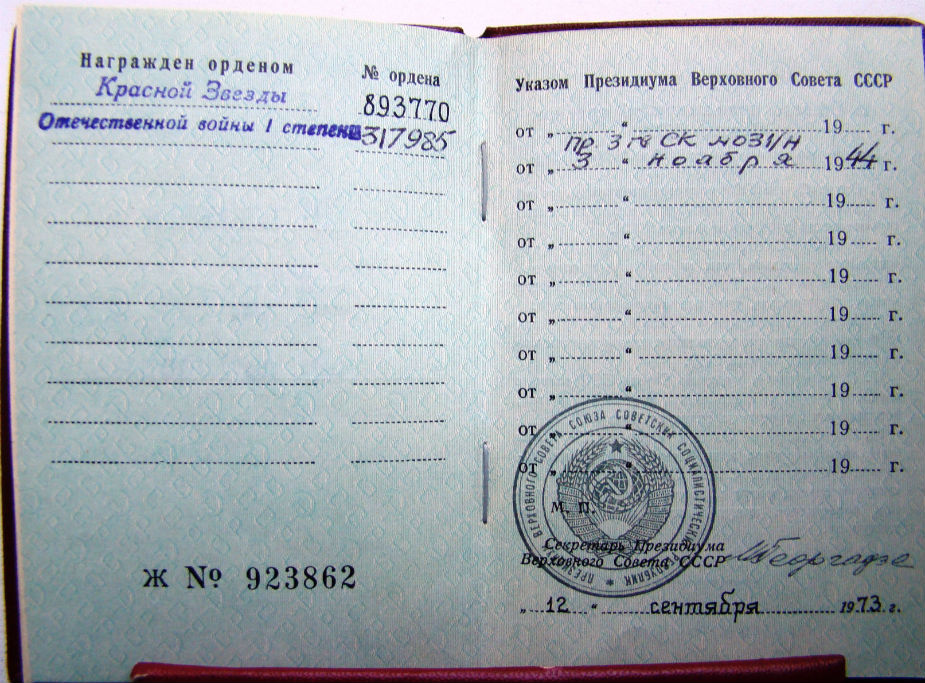 Награжден орденом
№ ордена
Красной Звезды
893770
Отечественной войны I степени
317985
Указом Президиума Верховного Совета СССР
от „ “ 19 г.
пр 3 гв СК №031/н
от „ 3 “ ноября 1944 г.
от „ “ 19 г.
от „ “ 19 г.
от „ “ 19 г.
от „ “ 19 г.
от „ “ 19 г.
от „ “ 19 г.
от „ “ 19 г.
от „ “ 19 г.
М. П.
Секретарь Президиума
Верховного Совета СССР
МГеоргадзе
„ 12 “ сентября 1973 г.
Ж № 923862
ПРЕЗИДИУМ ВЕРХОВНОГО СОВЕТА СОЮЗА СОВЕТСКИХ СОЦИАЛИСТИЧЕСКИХ РЕСПУБЛИК